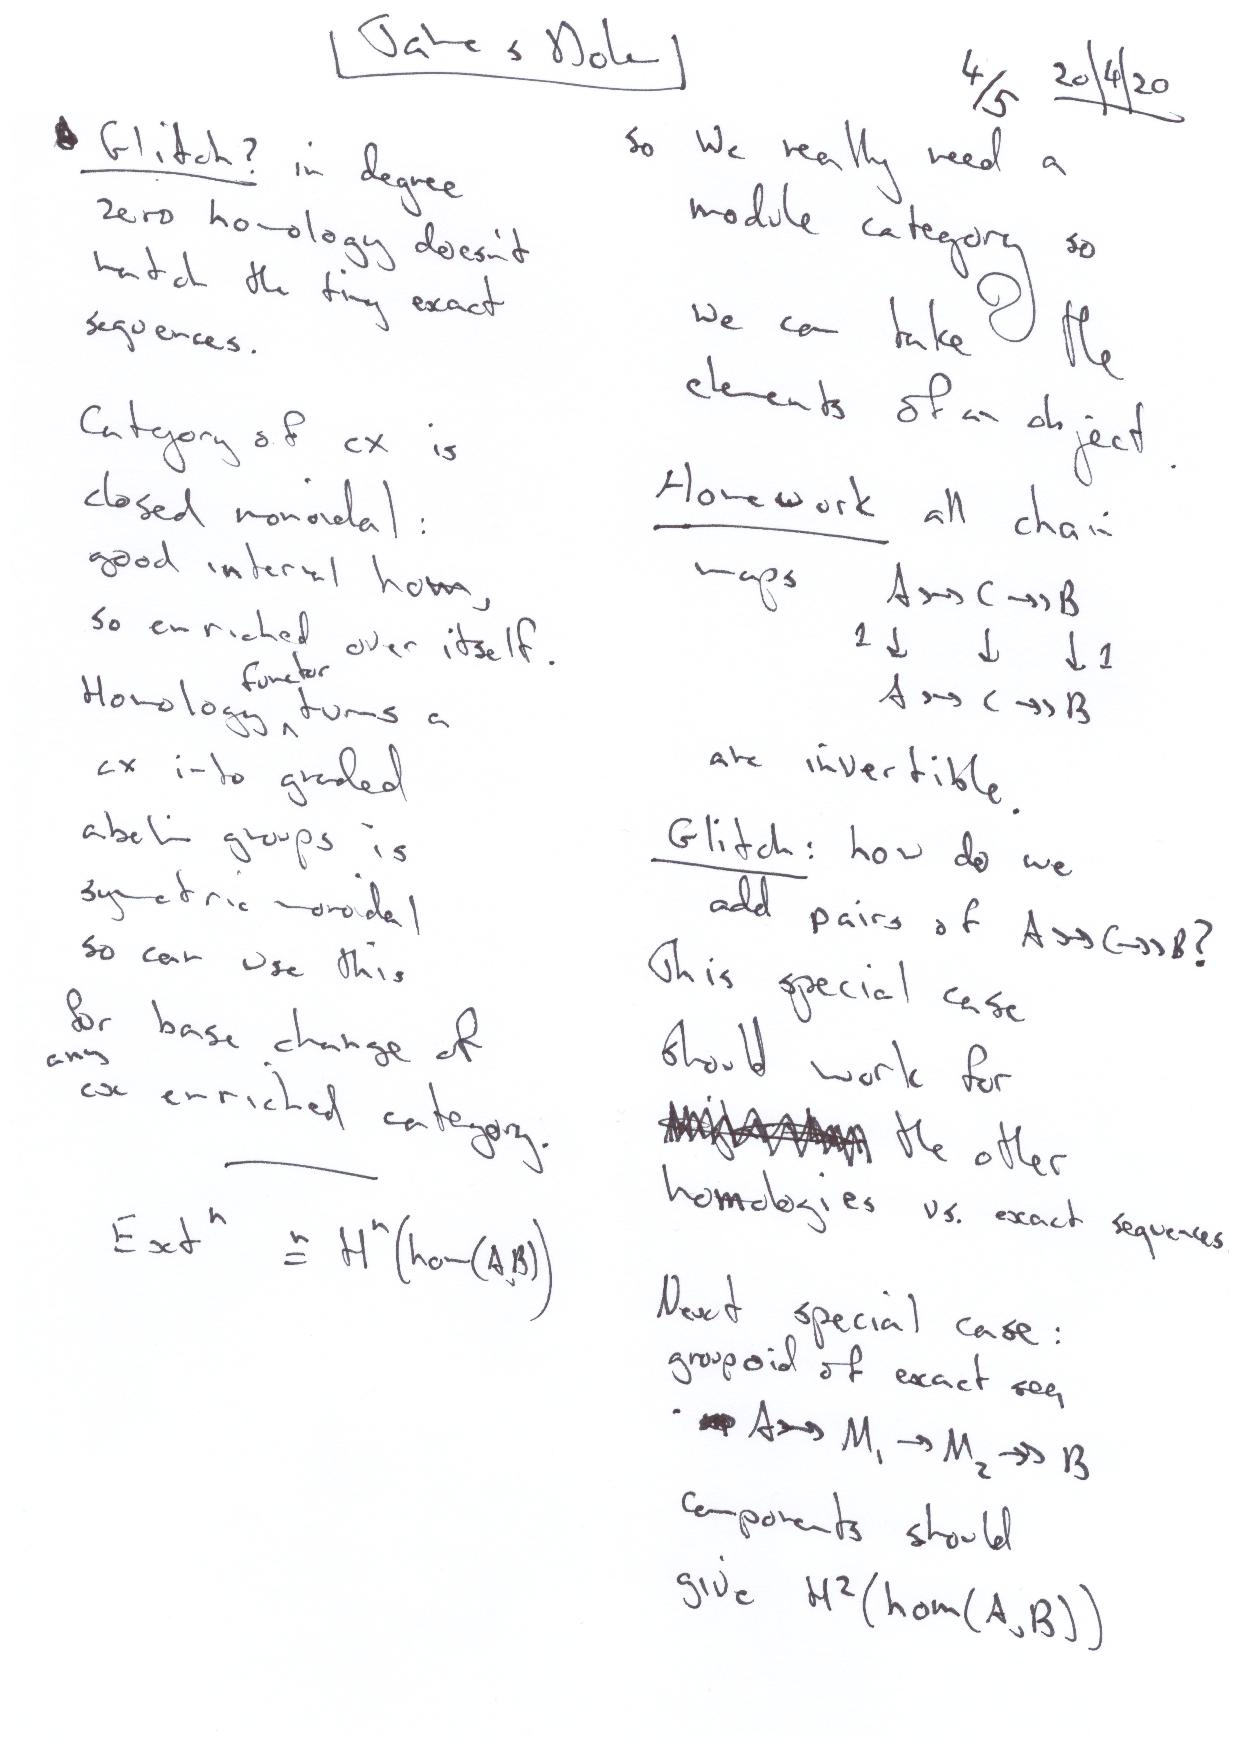 Jake's Note
4/5 20/4/20
Glitch? in degree
zero homology doesn't
match the tiny exact
sequences.
Category of cx is
closed monoidal:
good internal hom,
so enriched over itself.
functor
Homology ^ turns a
cx into graded
abelian groups is
symetric monoidal
so can use this
for base change of
any
cx enriched category.
Extⁿ ≅ Hⁿ(hom(A,B))
so we really need a
module category so
we can take the
elements of an object.
Homework all chain
maps A ↣ C ↠ B
1↓ ↓ ↓1
A ↣ C ↠ B
are invertible.
Glitch: how do we
add pairs of A ↣ C ↠ B?
This special case
should work for
the other
homologies vs. exact sequences
Next special case:
groupoid of exact seq
A ↣ M₁ → M₂ ↠ B
components should
give H²(hom(A,B))